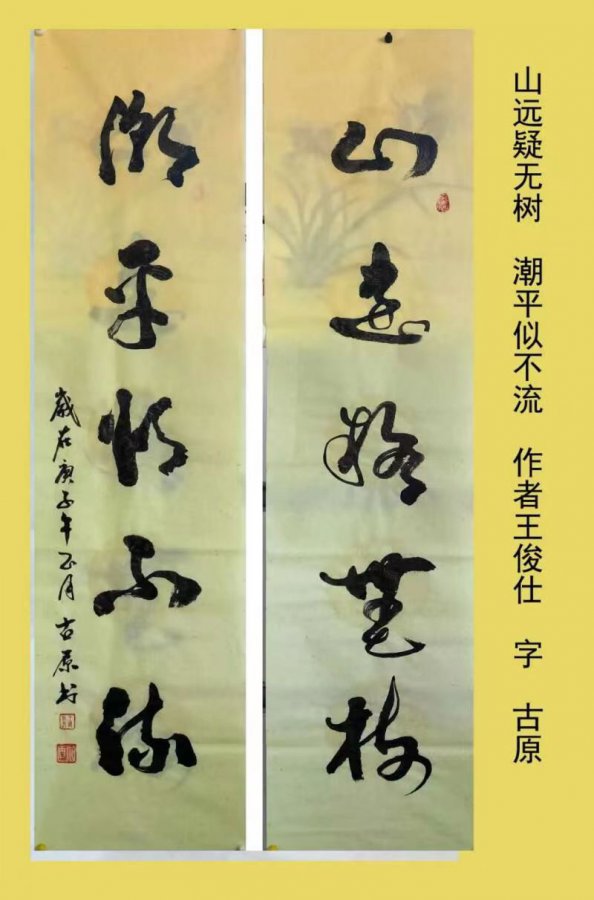 山远疑無树
潮平似不流
歲在庚子年正月 古原书
山远疑无树 潮平似不流 作者王俊仕 字 古原